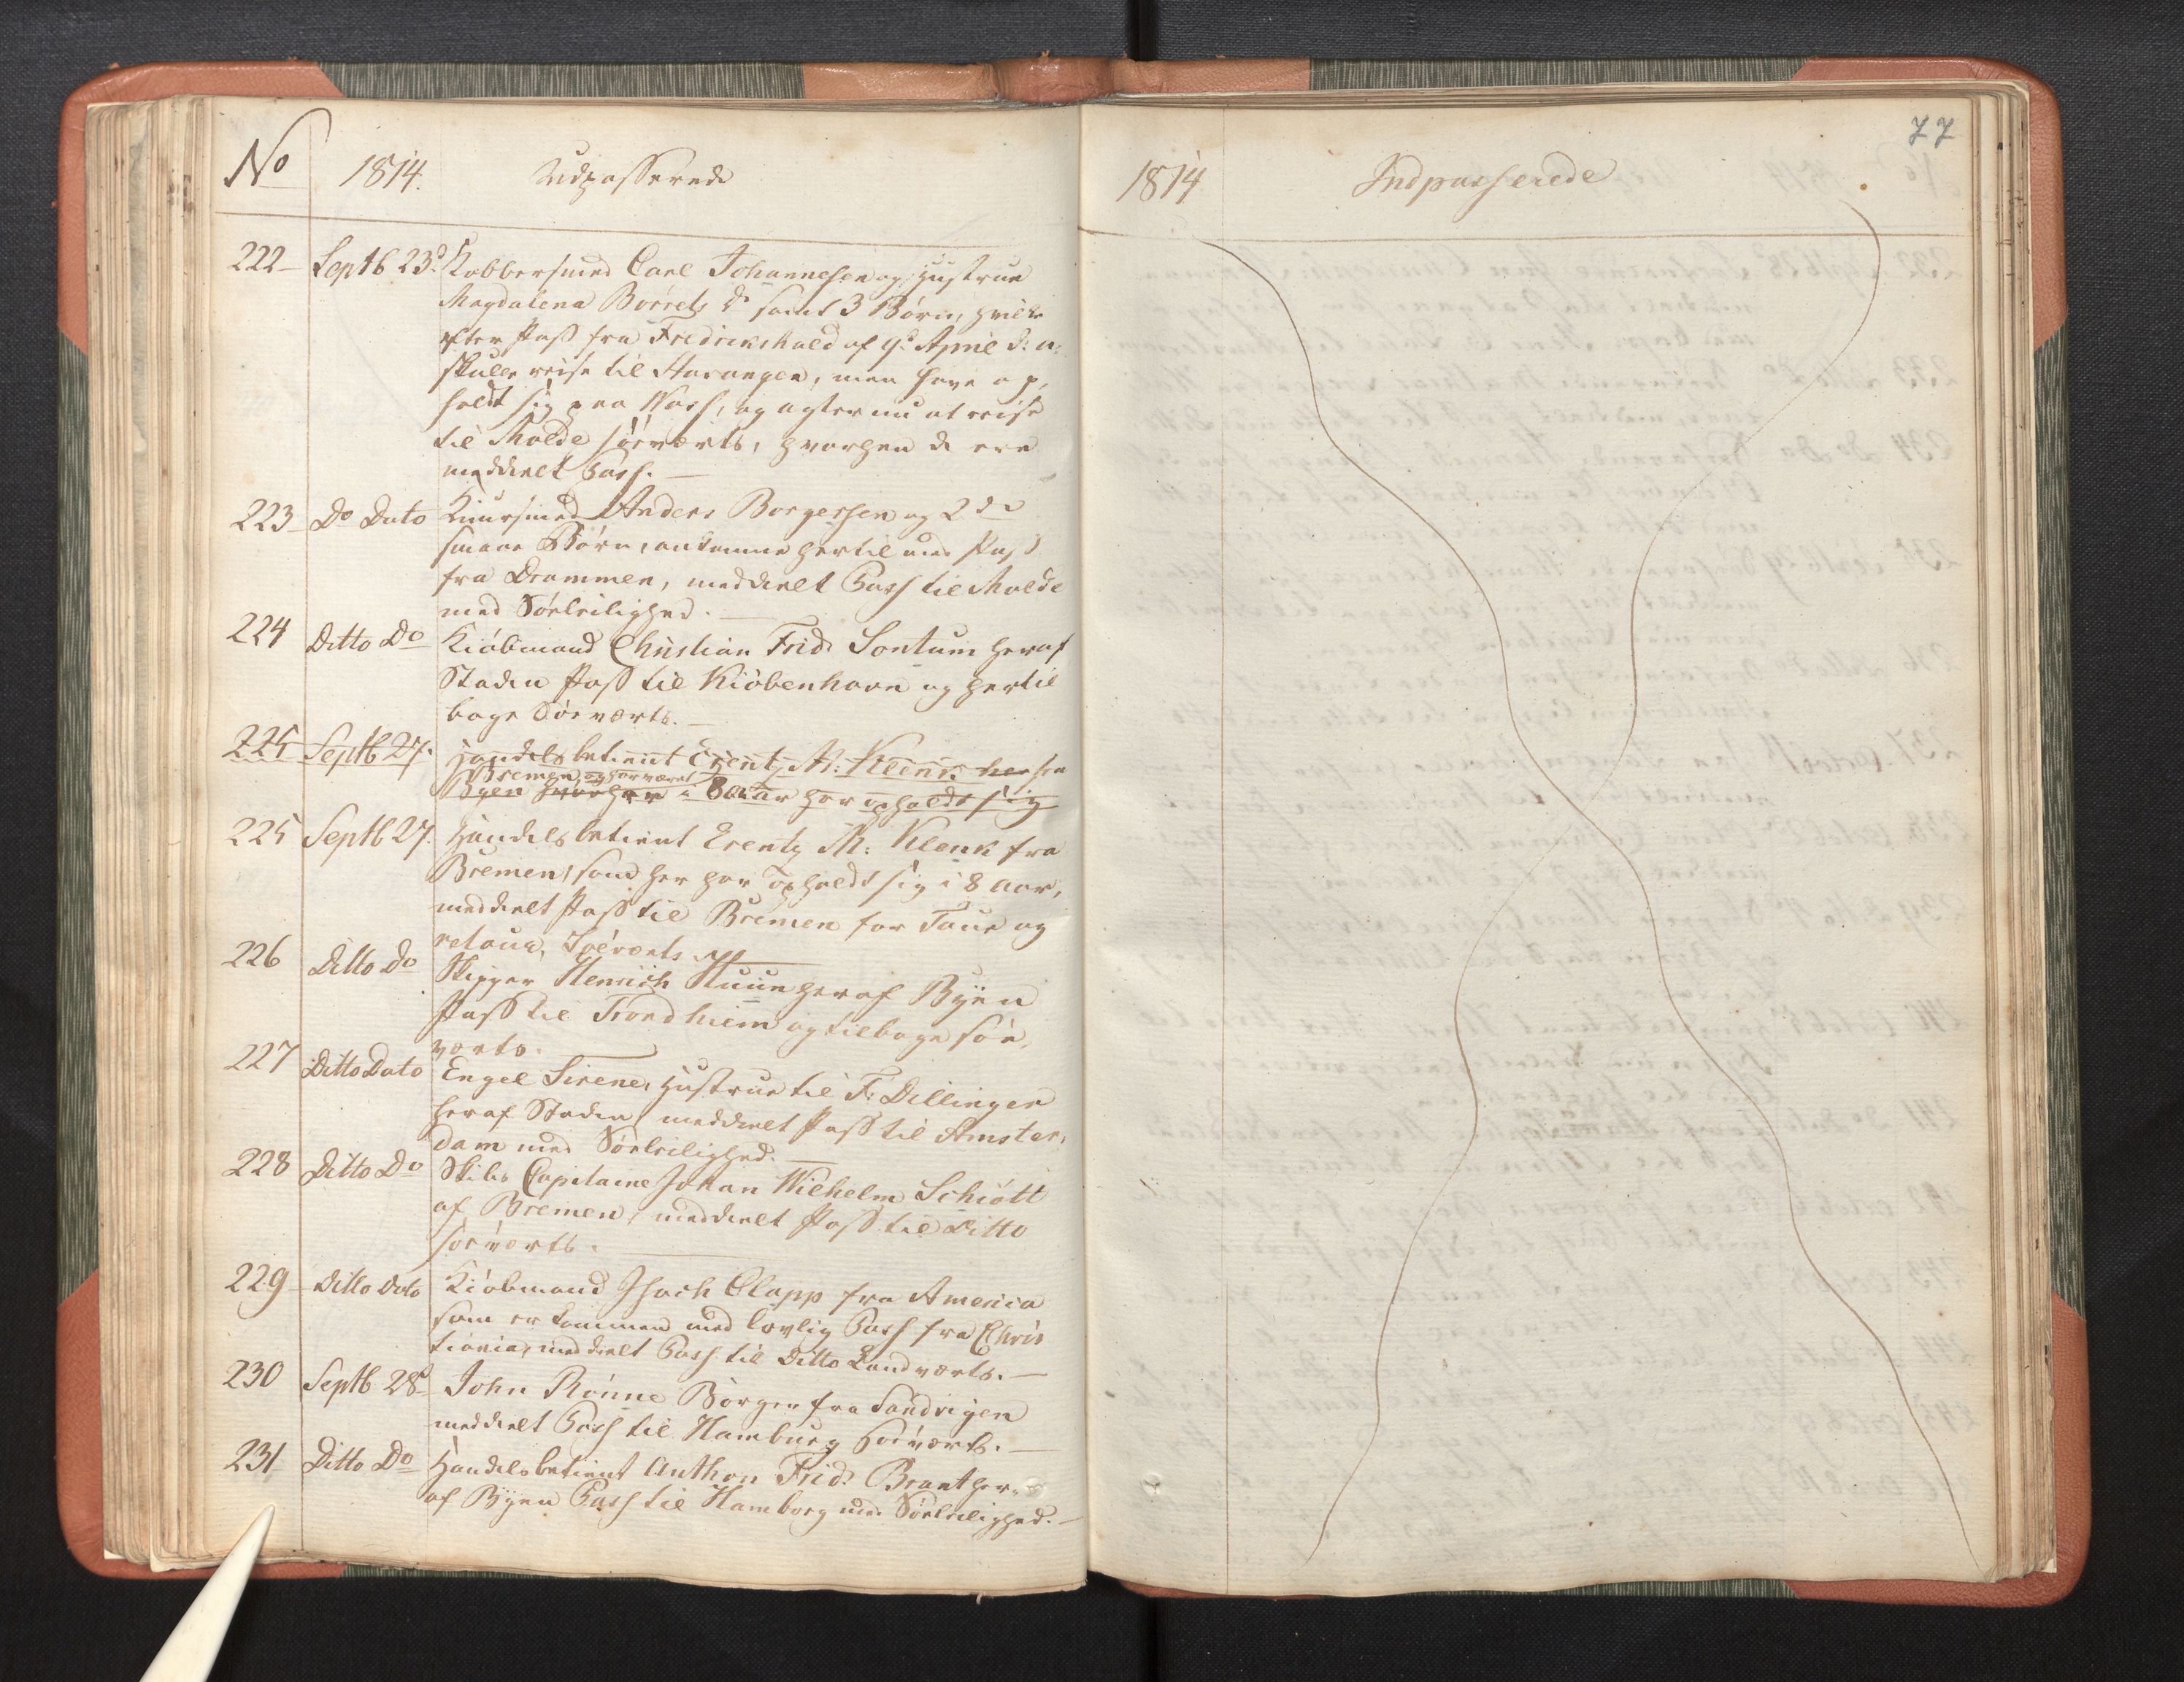 No 1814. Udpasserede
222 Septb 23d Kobbersmed Carl Johannesen og Hustrue
Magdalena Borrets dr samt 3 Børn, hvilke
efter Pass fra Fredrikshald af 9d April d: a:
skulle reise til Stavanger, men have op,
holdt sig paa Voss, og agter nu at reise
til Molde søeværts, hvorhen de ere
meddeelt Pass. —
223 Do Dato Knursmed Anders Borgersen og 2de
smaae Børn, ankomne hertil med Pass
fra Drammen, meddeelt Pass til Molde
med Søeleilighed. —
224 Ditto Do Kiøbmand Christian Frid: Sontum heraf
Staden Pass til Kiøbenhavn og hertil
bage Søeværts. —
225 Septb 27. Handelsbetient Erentz M: Klenk her fra
Bremen og har været
Byen hvor han i 8 Aar har opholdt sig
225 Septb 27. Handelsbetient Erentz M: Klenk fra
Bremen, som her har opholdt sig i 8 Aar,
meddeelt Pass til Bremen for Tour og
retour, Søeværts.
226 Ditto Do Skipper Henrich Kuun heraf Byen
Pass til Trondhiem og tilbage søe,
værts.
227 Ditto Dato Engel Sirene, Hustrue til F: Dillinger
heraf Staden, meddeelt Pass til Amster,
dam med Søeleilighed. —
228 Ditto Do Skibs Capitaine Johan Wilhelm Schiøtt
af Bremen, meddeelt Pass til Ditto
søeværts.
229 Ditto Dato Kiøbmand Isach Clapp fra America
som er kommen med lovlig Pass fra Chris
tiania, meddeelt Pass til Ditto Landværts. —
230 Septb 28d John Rønne Borger fra Sandvigen
meddeelt Pass til Hamburg søeværts. —
231 Ditto Do Handelsbetient Anthon Frid: Brant her,
af Byen Pass til Hamborg med Søeleilighed. —
77
1814 Indpasserede